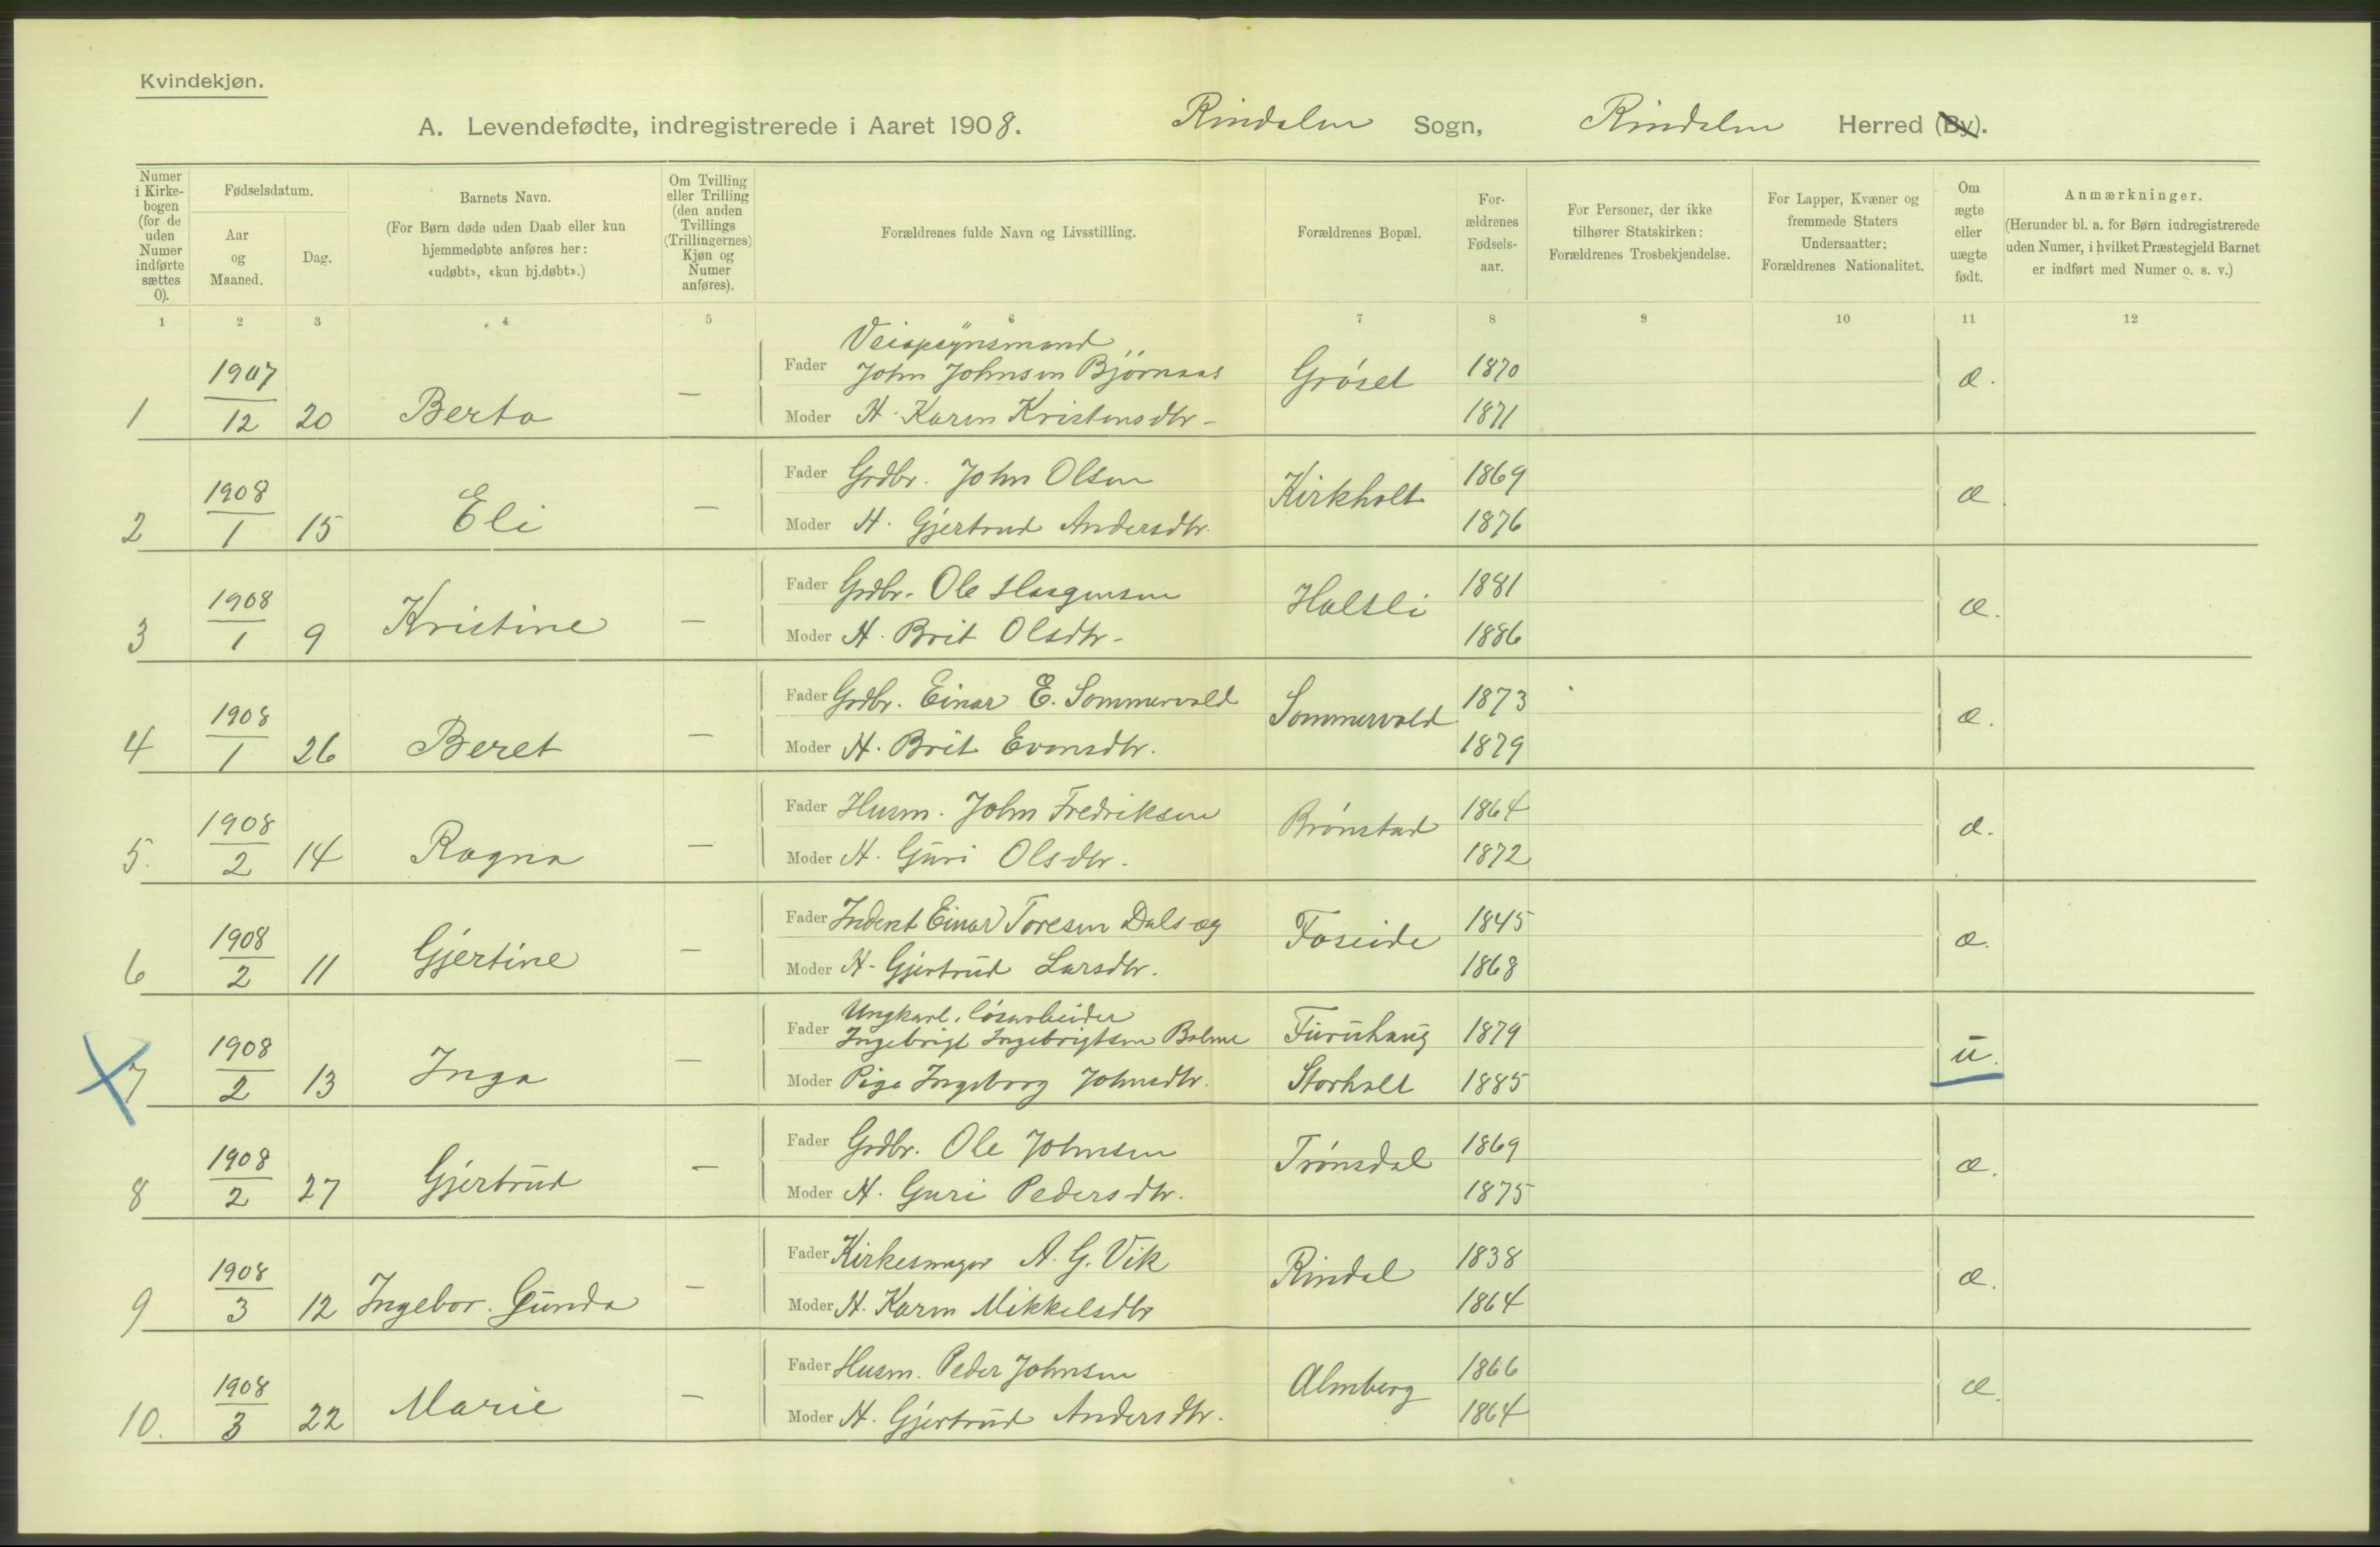 Kvindekjøn.
A. Levendefødte, indregistrerede i Aaret 1908. Rindalen Sogn, Rindalen Herred (By).
Numer i Kirkebogen (for de uden Numer indførte sættes 0).
Fødselsdatum.
Aar og Maaned.
Dag.
Barnets Navn.
(For Børn døde uden Daab eller kun hjemmedøbte anføres her: «udøbt», «kun hj.døbt».)
Om Tvilling eller Trilling (den anden Tvillings (Trillingernes) Kjøn og Numer anføres).
Forældrenes fulde Navn og Livsstilling.
Forældrenes Bopæl.
Forældrenes Fødselsaar.
For Personer, der ikke tilhører Statskirken: Forældrenes Trosbekjendelse.
For Lapper, Kvæner og fremmede Staters Undersaatter: Forældrenes Nationalitet.
Om ægte eller uægte født.
Anmærkninger.
(Herunder bl. a. for Børn indregistrerede uden Numer, i hvilket Præstegjeld Barnet er indført med Numer o. s. v.)
1 2 3 4 5 6 7 8 9 10 11 12
1 1907/12 20 Berta —
Fader John Johnsen Bjørnaas Grøset 1870 æ.
Moder H. Karen Kristensdtr. 1871
2 1908/1 15 Eli —
Fader Grdbr. John Olsen Kirkholt 1869 æ.
Moder H. Gjertrud Andersdtr. 1876
3 1908/1 9 Kristine —
Fader Grdbr. Ole Haagensen Holtli 1881 æ.
Moder H. Brit Olsdtr. 1886
4 1908/1 26 Beret —
Fader Grdbr. Einar E. Sommervold Sommervold 1873 æ.
Moder H. Brit Evensdtr. 1879
5. 1908/2 14 Ragna —
Fader Husm. John Fredriksen Brønstad 1864 æ.
Moder H. Guri Olsdtr. 1872
6 1908/2 11 Gjertine —
Fader Inderst Einar Toresen Foseide 1845 æ.
Moder H. Gjertrud Larsdtr. 1868
7 1908/2 13 Inga —
Ungkarl, løsarbeider
Fader Ingebrigt Ingebrigtsen Bolme Furuhaug 1879 u.
Moder Pige Ingeborg Johnsdtr. Storholt 1885
8 1908/2 27 Gjertrud —
Fader Grdbr. Ole Johnsen Trønsdal 1869 æ.
Moder H. Guri Pedersdtr. 1875
9 1908/3 12 Ingebor. Gunda —
Fader Kirkesanger A. G. Vik Rindal 1838 æ.
Moder H. Karen Mikkelsdtr 1864
10. 1908/3 22 Marie —
Fader Husm. Peder Johnsen Almberg 1866 æ.
Moder H. Gjertrud Andersdtr. 1864